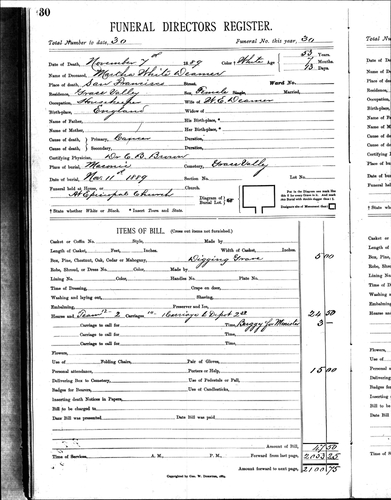 30
FUNERAL DIRECTORS REGISTER.
Total Number to date, 30 Funeral No. this year, 30
Date of Death, November 7th 1889 Color † White Age 53 Years. 7 Months. 13 Days.
Name of Deceased, Martha White Deamer
Place of death, San Francisco Street. Ward No.
Residence, Grass Valley Sex, Female Single, Married,
Occupation, Housekeeper Wife of W.C. Deamer
Birthplace, England Widow of
Name of Father, His Birth-place, *
Name of Mother, Her Birth-place, *
Cause of death, Primary, Cancer Duration,
Cause of death, Secondary, Duration,
Certifying Physician, Dr. C. B. Brown
Place of burial, Masonic Cemetery, Grass Valley
Date of burial, Nov. 11th 1889 Section No. Lot No.
Funeral held at House, or Church.
At Episcopal Church
Diagram of Burial Lot.
† State whether White or Black. * Insert Town and State.
ITEMS OF BILL. (Cross out items not furnished.)
Casket or Coffin No. Style, Made by
Length of Casket, Feet, Inches. Width of Casket, Inches.
Box, Pine, Chestnut, Oak, Cedar or Mahogany, Digging Grave 5 00
Robe, Shroud, or Dress No. Color, Made by
Lining No. Color, Handles No. Plate No.
Time of Dressing, Crape on door,
Washing and laying out, Shaving,
Embalming, Preserver and Ice,
Hearse and Team 12- 2 Carriages 10- 1 Carriage to Depot 2 50 24 50
Carriage to call for Time, Buggy for Minister 3 —
Carriage to call for Time,
Carriage to call for Time,
Flowers,
Use of Folding Chairs, Pair of Gloves,
Personal attendance, Porters or Help, 15 00
Delivering Box to Cemetery, Use of Pedestals or Pall,
Badges for Bearers, Use of Candlesticks,
Inserting death Notices in Papers,
Bill to be charged to
Date Bill was presented Date Bill was paid
Amount of Bill, 47 50
Time of Services, A. M., P. M. Forward from last page, 2053 25
Amount forward to next page, 2100 75